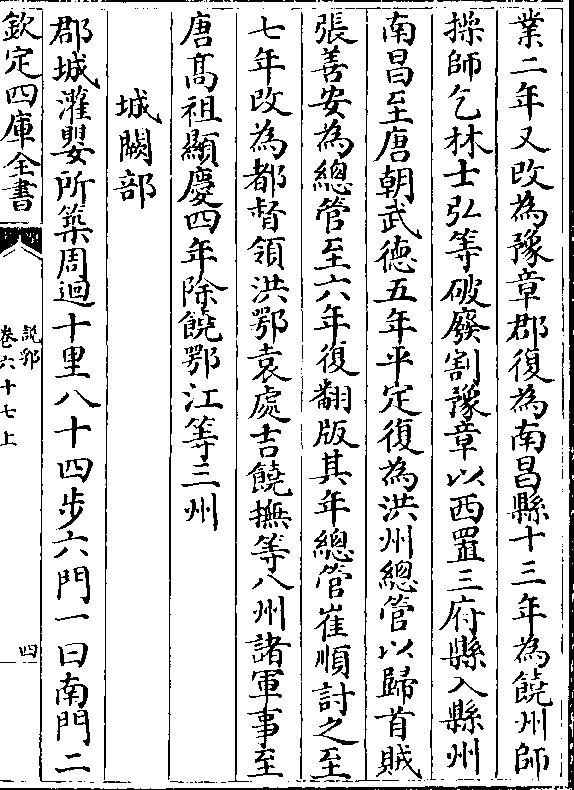 業二年又改為豫章郡復為南昌縣十三年為饒州師
操師乞林士弘等破廢割豫章以西置三府縣入縣州
南昌至唐朝武德五年平定復為洪州總管以歸首賊
張善安為總管至六年復翻版其年總管崔順討之至
七年改為都督領洪鄂袁處吉饒撫等八州諸軍事至
唐髙祖顯慶四年除饒鄂江等三州
城闕部
郡城灌嬰所築周迴十里八十四步六門一曰南門二
欽定四庫全書
說郛
卷六十七上
四